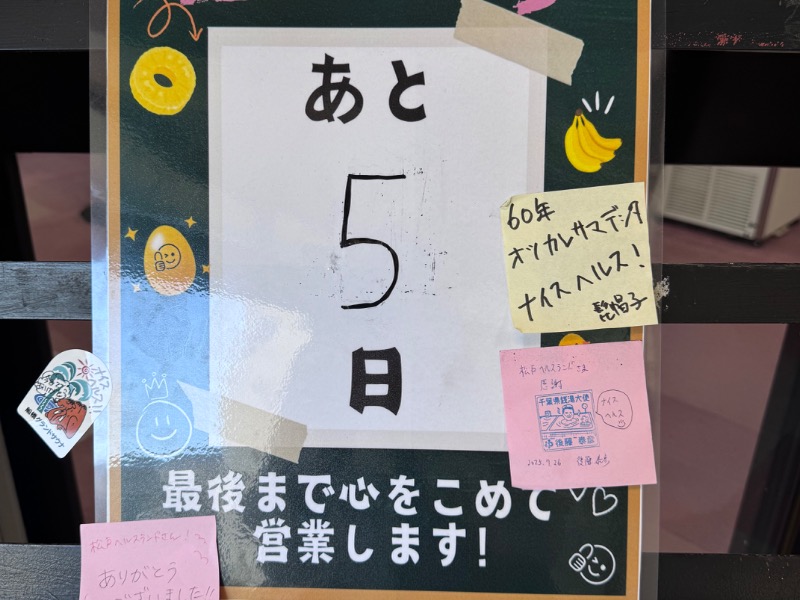 あと
5
日
最後まで心をこめて
営業します!
60年
オツカレサマデシタ
ナイスヘルス!
髭帽子
松戸ヘルスランドさま
感謝
千葉県銭湯大使
後藤
ナイス
ヘルス
2025.9.26
ナイス
ヘルス!!
船橋グランドサウナ
松戸ヘルスランドさん!
ありがとう
ございました!!